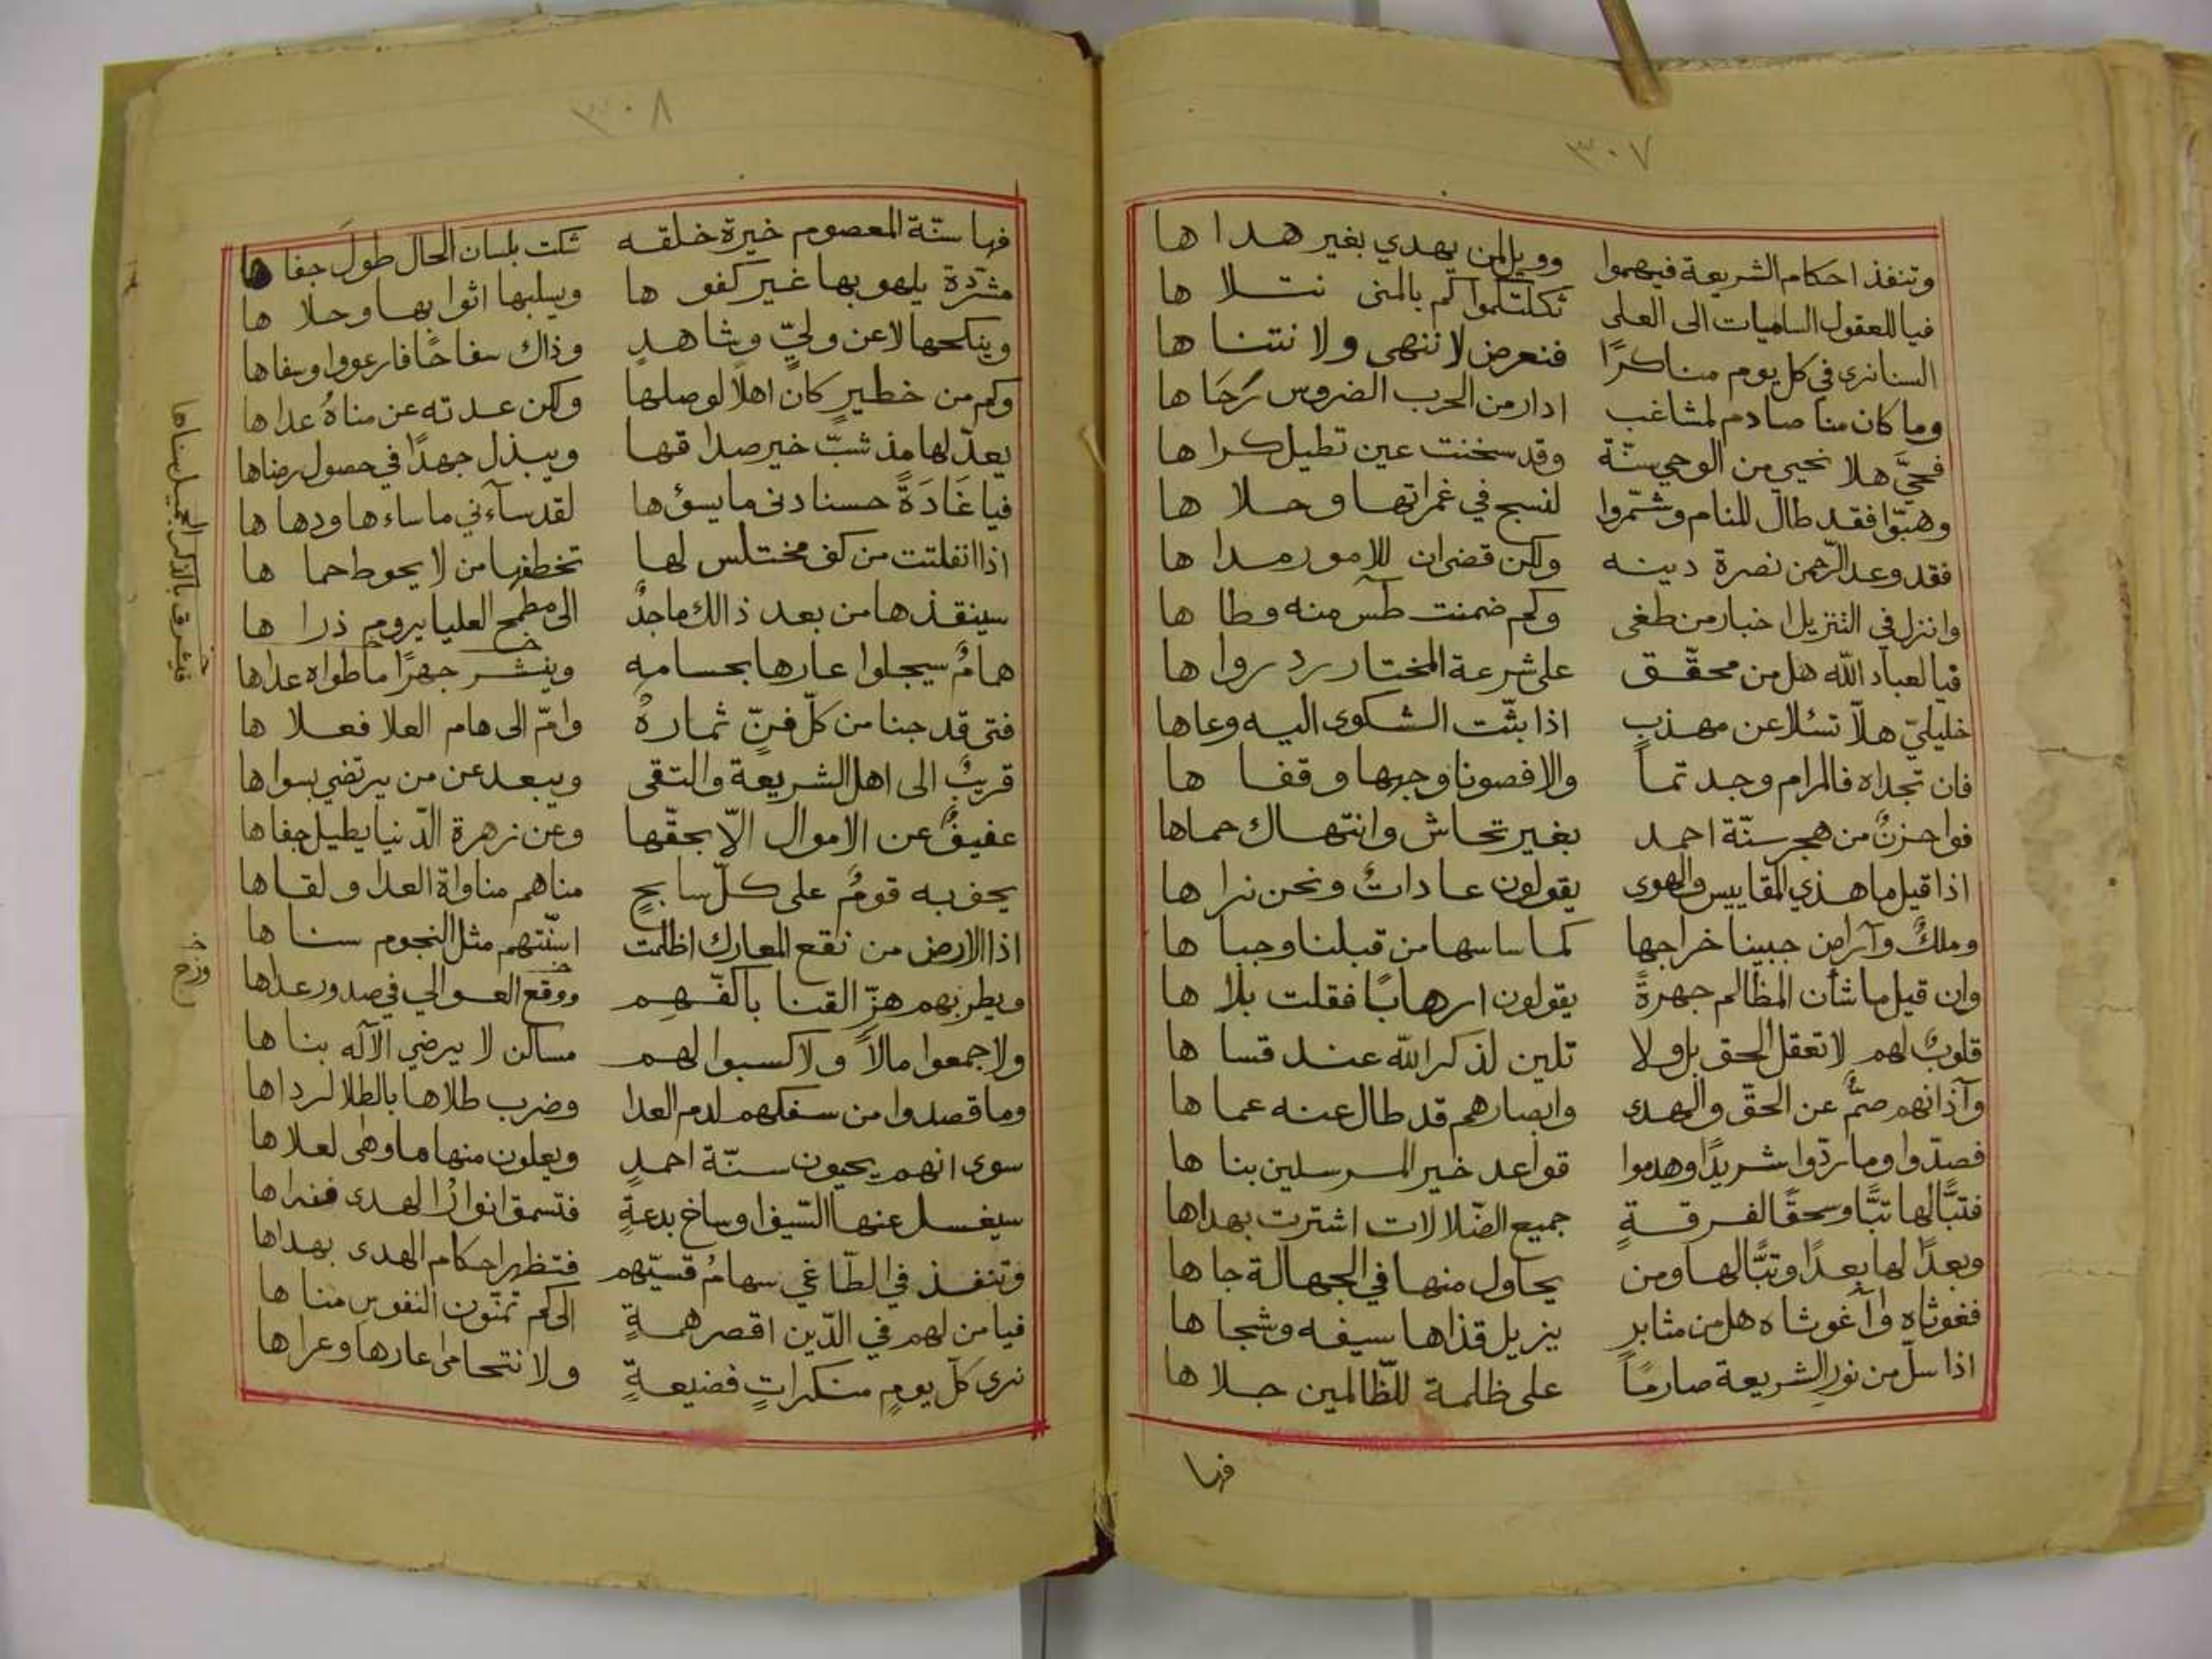 ٣٠٧
وتنفذ احكام الشريعة فيهموا وويل لمن يهدي بغير هداها
فيا للعقول الساميات الى العلى ثكلتكموا كم بالمنى نتلاها
السنا نرى في كل يوم مناكرًا فنعرض لا ننهى ولا نتناها
وما كان منا صادم لمشاغب ادار من الحرب الضروس رَحَاها
فحيَّ هلا نحيي من الوحي سنّة وقد سخنت عين تطيل كراها
وهبّوا فقد طال المنام وشمّروا لنسبح في غمراتها وحلاها
فقد وعد الرّحمن نصرة دينه ولكن قضى ان للامور مداها
وانزل في التنزيل اخبار من طغى وكم ضمنت طس منه وطاها
فيا لعباد الله هل من محقّق على شرعة المختار رد رواها
خليليّ هلّا تسئلا عن مهذب اذا بثّت الشكوى اليه وعاها
فان تجداه فالمرام وجدتماً والا فصونا وجهها وقفاها
فواحزنٌ من هجر سنّة احمد بغير تحاش وانتهاك حماها
اذا قيل ما هذي المقاييس والهوى يقولون عاداتٌ ونحن نراها
وملكٌ وآرامن جبينا خراجها كما ساسها من قبلنا وجباها
وان قيل ما شأن المظالم جهرةً يقولون ارهابًا فقلت بلاها
قلوبٌ لهم لا تعقل الحق بل ولا تلين لذكر الله عند قساها
وآذانهم صمٌّ عن الحقّ والهدى وابصارهم قد طال عنه عماها
فصدّوا وما ردّوا شريدًا وهدموا قواعد خير المرسلين بناها
فتبًّا لها تبًّا وسحقًا لفرقةٍ جميع الضّلالات اشترت بهداها
وبعدًا لها بعدًا وتبًّا لها ومن يحاول منها في الجهالة جاها
فغوثاه وآغوثاه هل من مثابرٍ يزيل قذاها سيفه وشجاها
اذا سلّ من نور الشريعة صارمًا على ظلمة للظّالمين جلاها
فها
٣٠٨
فها سنّة المعصوم خيرة خلقه شكت بلسان الحال طولَ جفاها
مشرّدة يلهو بها غير كفوها ويسلبها اثوابها وحلاها
وينكحها لا عن وليٍّ وشاهدٍ وذاك سفاحًا فارعووا وسفاها
وكم من خطيرٍ كان اهلًا لوصلها ولكن عدته عن مناهُ عداها
يعدّ لها مذ شبّ خير صداقها ويبذل جهدًا في حصول رضاها
فيا غَادَةً حسنا دنى ما يسؤها لقد سآءني ما ساءها ودهاها
اذا انفلتت من كف مختلس لها تخطفها من لا يحوط حماها
سينقذها من بعد ذالك ماجدٌ الى مطمح العليا يروم ذراها
همامٌ سيجلوا عارها بحسامه وينشر جهرًا ما طواه عداها
فتى قد جنا من كلّ فنٍّ ثمارهُ وامّ الى هام العلا فعلاها
قريبٌ الى اهل الشريعة والتقى ويبعد عن من يرتضي بسواها
عفيفٌ عن الاموال الّا بحقّها وعن زهرة الدّنيا يطيل جفاها
يحف به قومٌ على كلّ سابحٍ مناهم مناواة العدا ولقاها
اذا الارض من نقع المعارك اظلمت اسنّتهم مثل النجوم سناها
ويطربهم هزّ القنا باكفّهم ووقع العوالي في صدور عداها
ولا جمعوا مالاً ولا كسبوا لهم مساكن لا يرضي الآله بناها
وما قصدوا من سفكهم لدم العدا وضرب طلاها بالطلا لرداها
سوى انهم يحيون سنّة احمدٍ ويعلون منها ما وهى لعلاها
سيغسل عنها السّيف اوساخ بدعةٍ فتسمق انوارُ الهدى فنراها
وتنفذ في الطّاغي سهامُ قسيّهم فتظهر احكام الهدى بهداها
فيا من لهم في الدّين اقصر همةٍ الى كم تمنّون النفوس مناها
نرى كلّ يومٍ منكراتٍ فضيعةٍ ولا نتحامى عارها وعراها
فيشرق بالذكر الجميل سناها